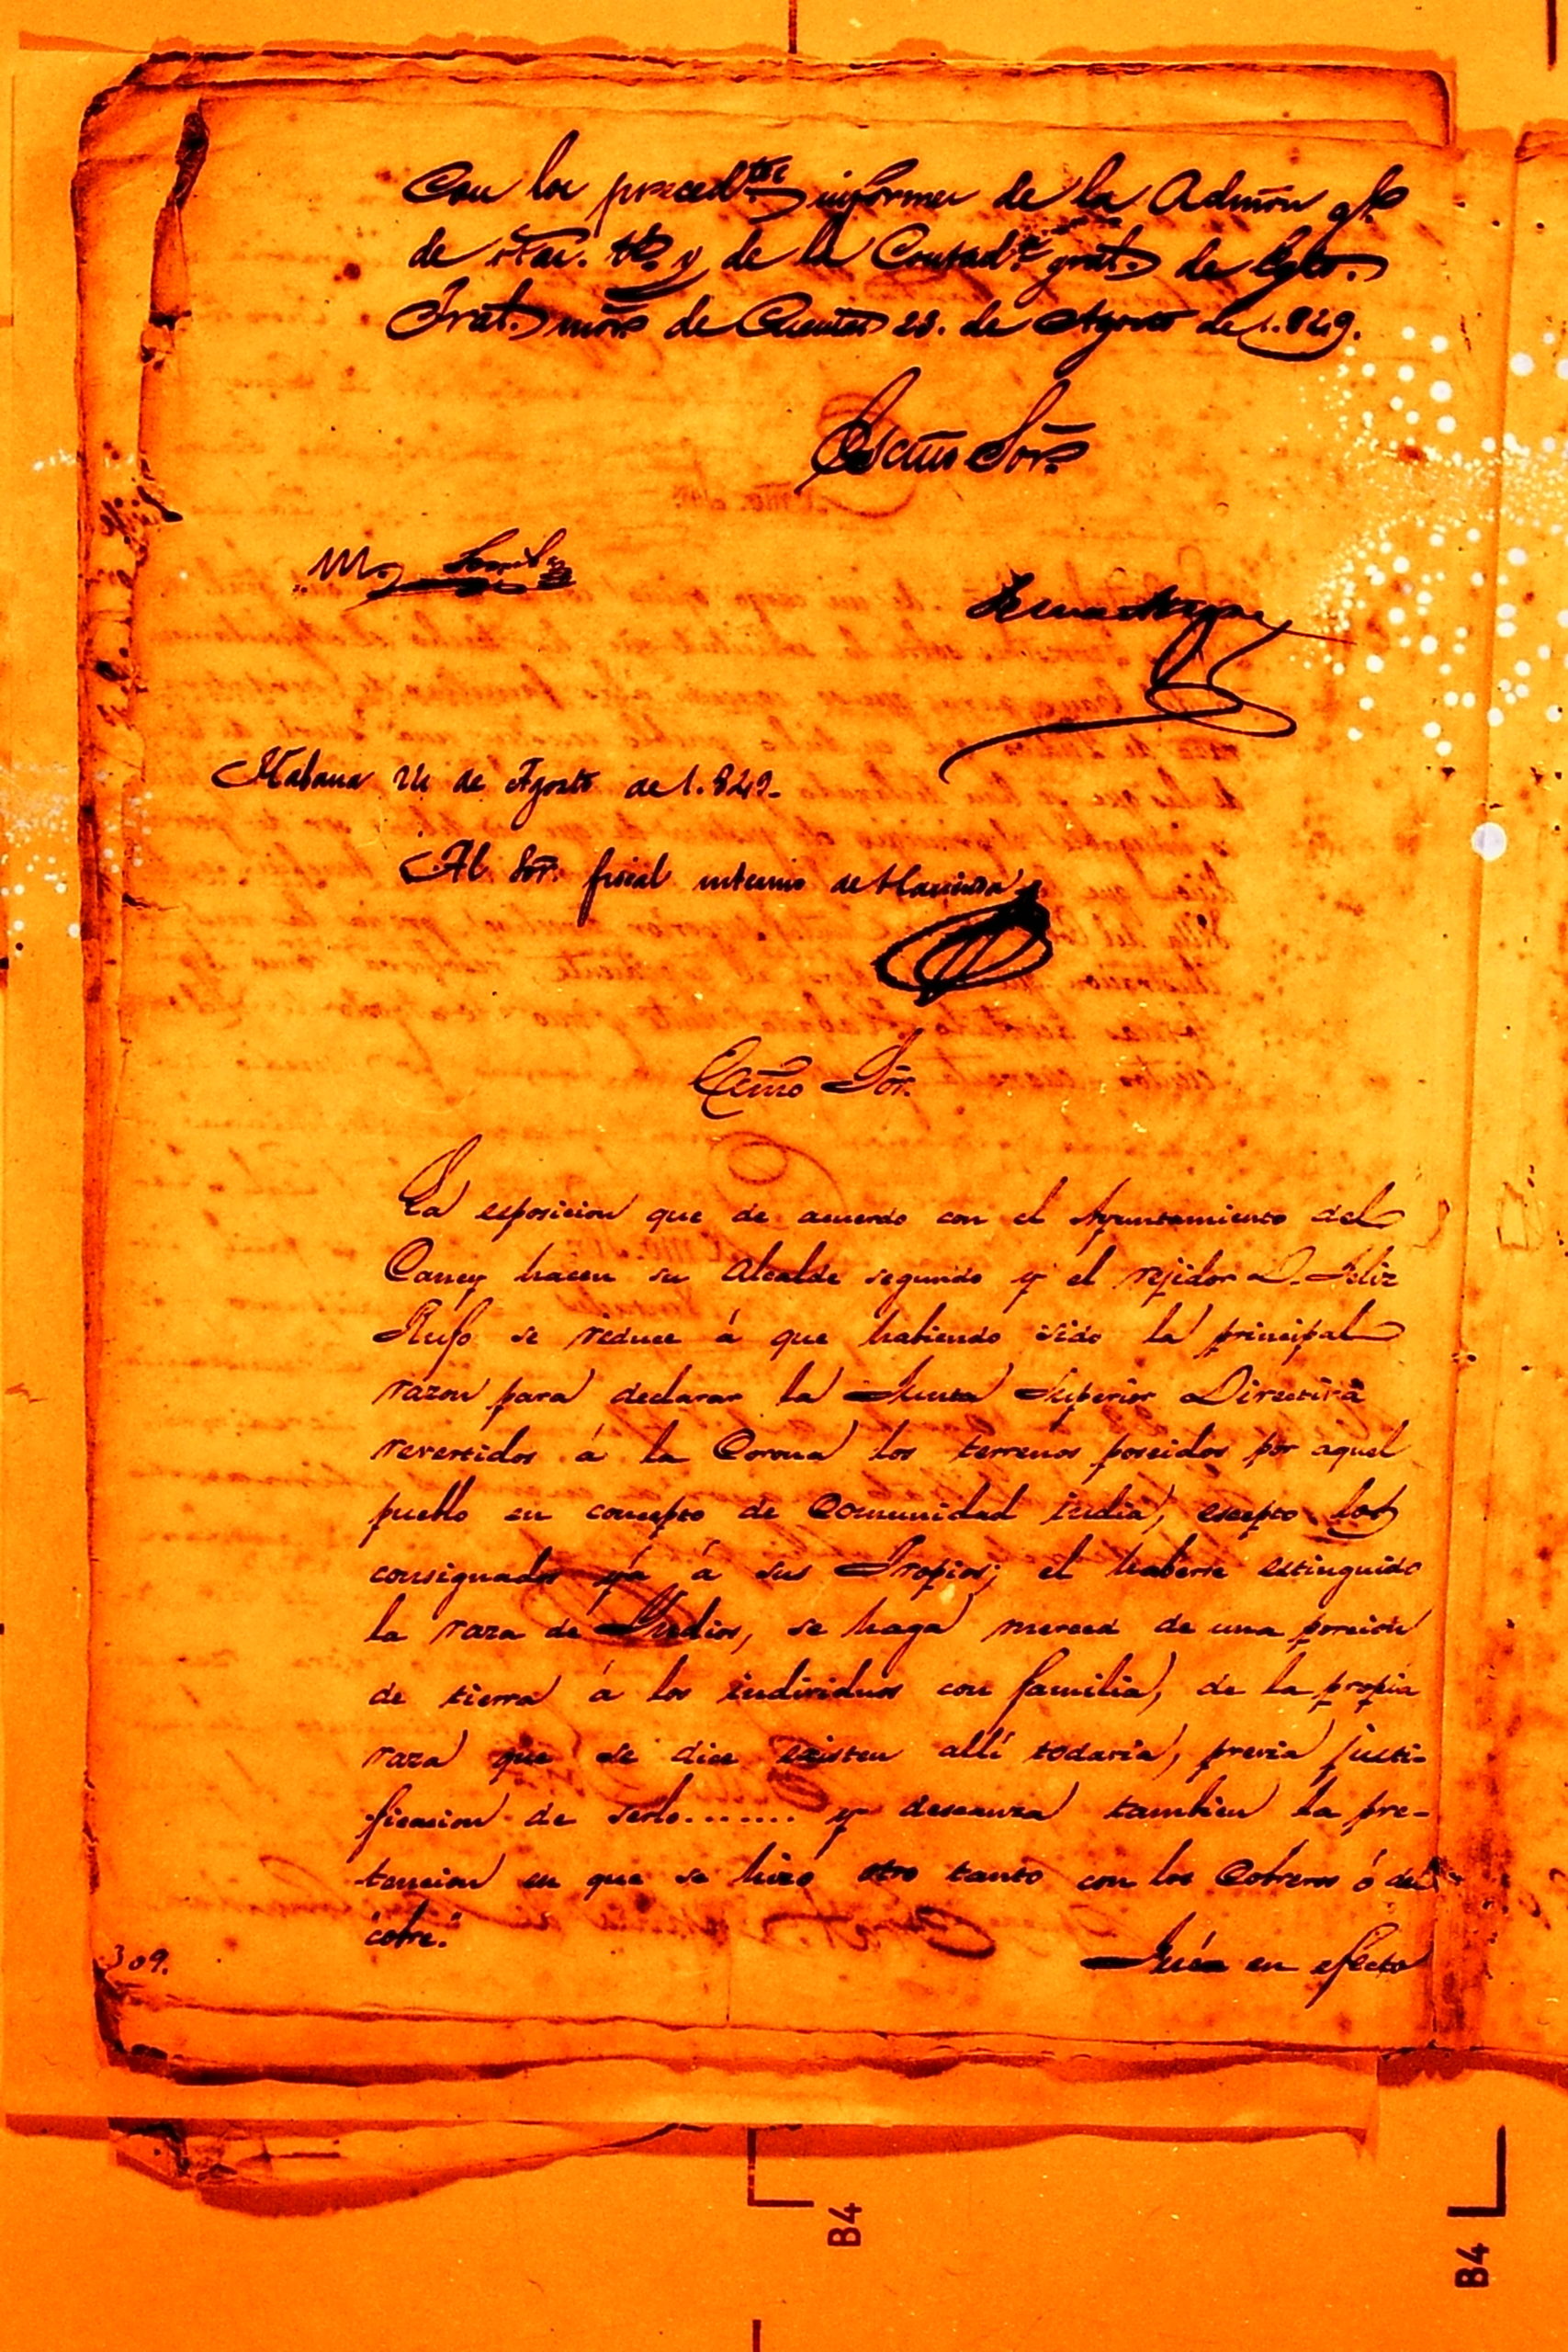 Con los preced.tes informes de la Admon gl.
de rtas. y de la Contad.a gral. de Egto.
Tral. mor. de Cuentas 23. de Agosto de 1.849.
Escmo Sor.
Habana 24 de Agosto de 1.849.
Al Sor. fiscal interino de Hacienda
Ecsmo Sor.
La esposicion que de acuerdo con el Ayuntamiento del
Caney hacen su Alcalde segundo y el rejidor D. Feliz
Rufo se reduce á que habiendo sido la principal
razon para declarar la Junta Superior Directiva
revertidos á la Corona los terrenos poseidos por aquel
pueblo en concepto de Comunidad india, escepto los
consignados yá á sus Propios; el haberse estinguido
la raza de Yndios, se haga merced de una porcion
de tierra á los individuos con familia, de la propia
raza que se dice existen allí todavia, previa justi-
ficacion de serlo....... y descansa tambien la pre-
tencion en que se hizo otro tanto con los Cobreros ó del
cobre."
309.
Fué en efecto
B4
B4